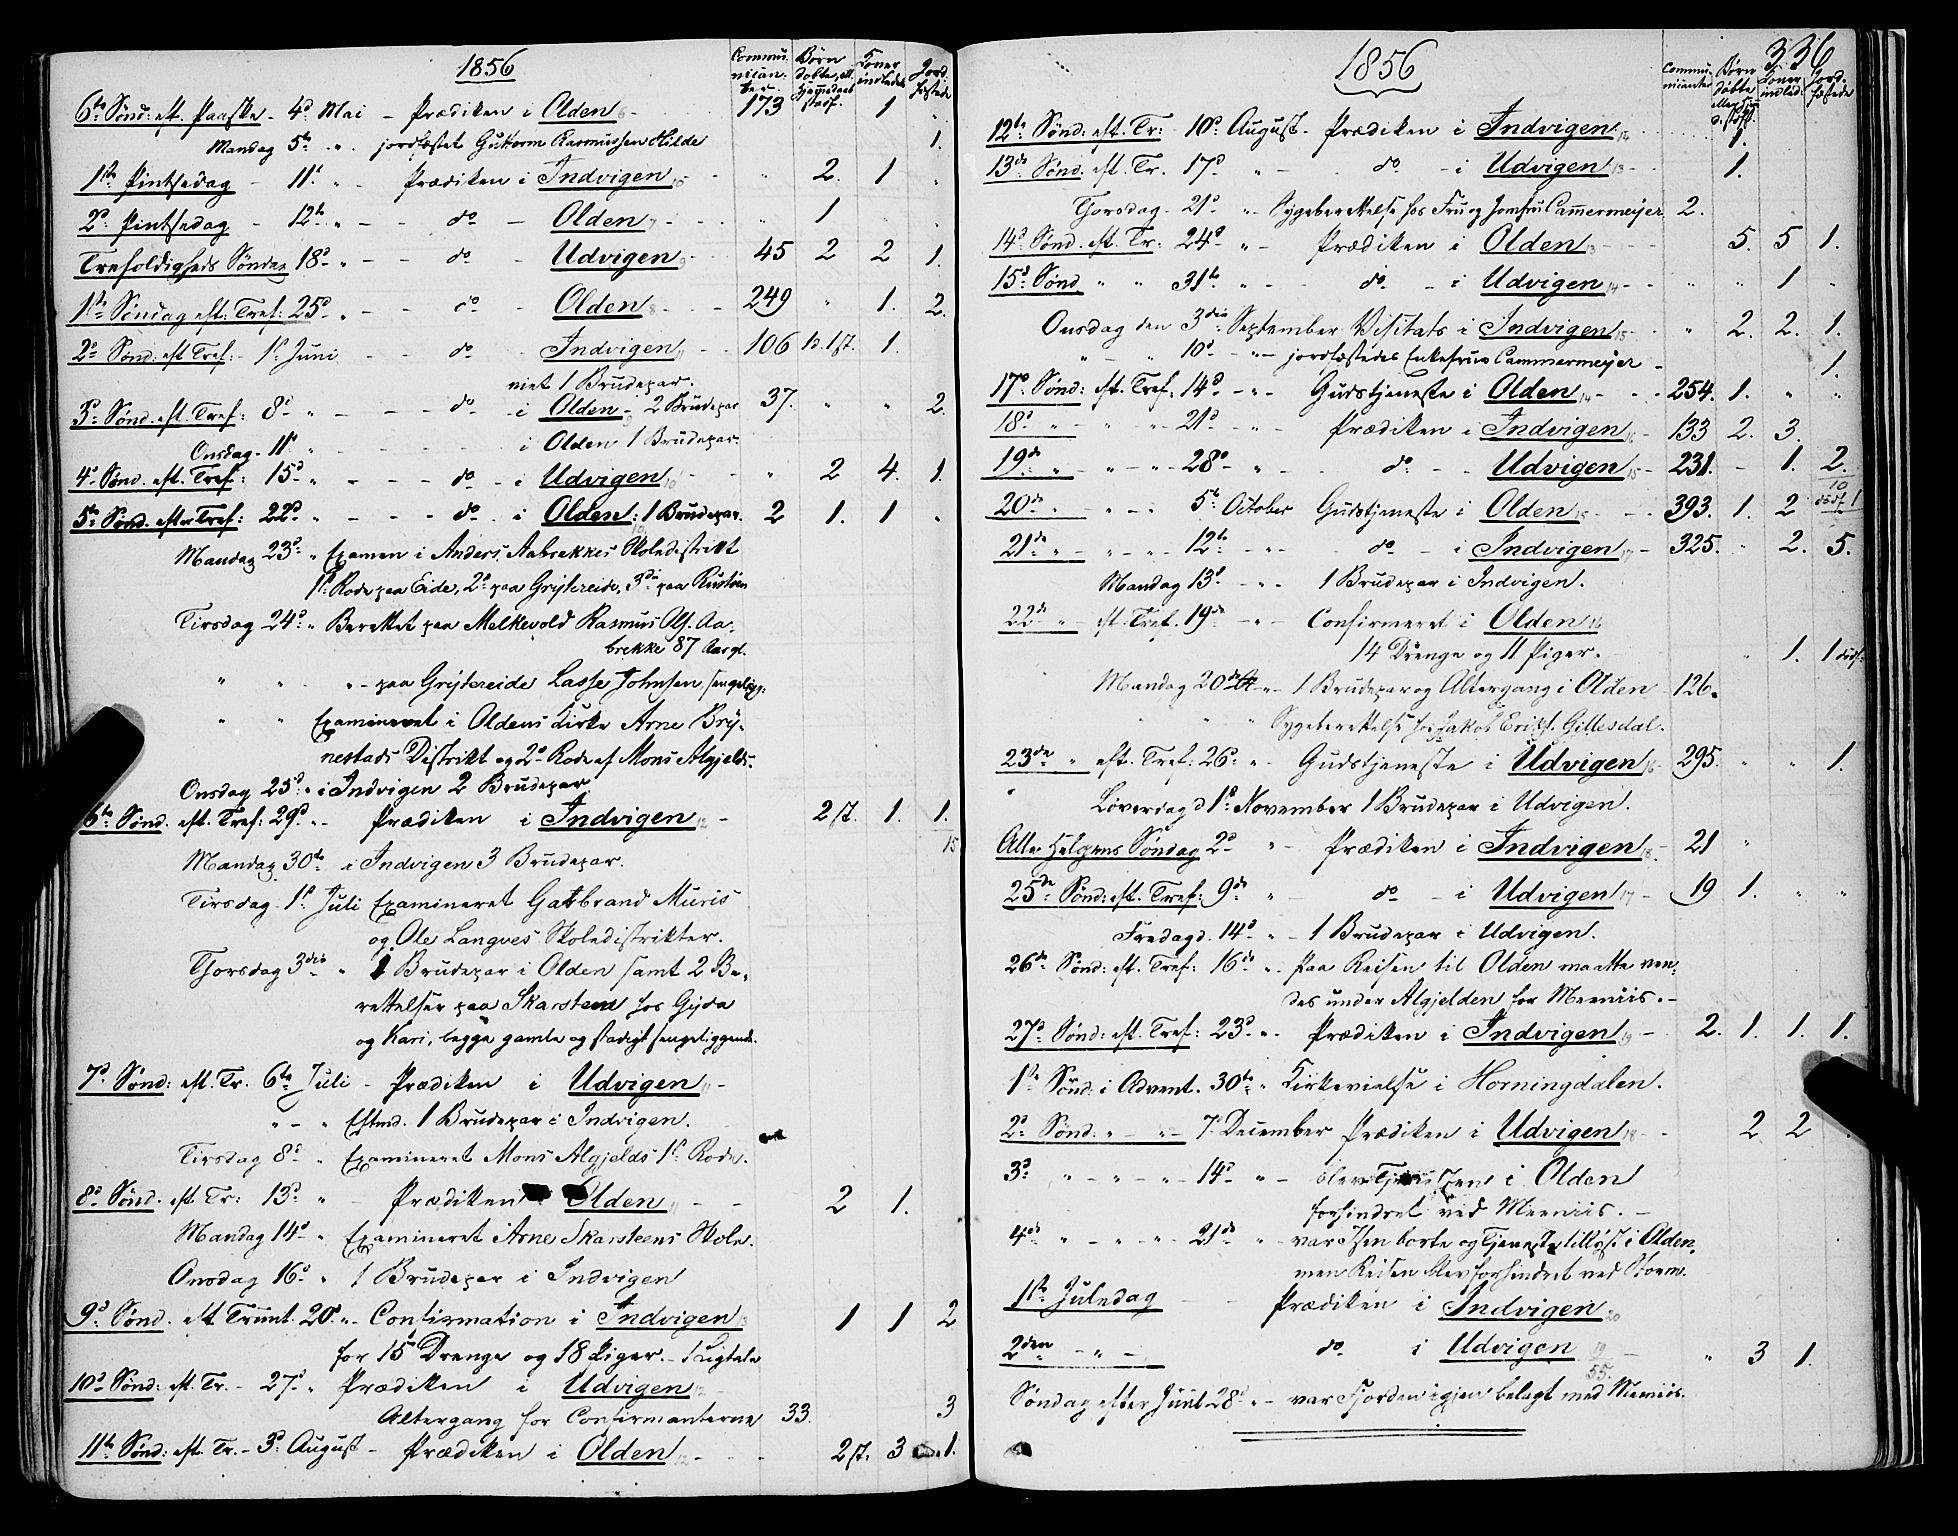 1856
Commu- nican- ter. Børn døbte, ell. hjemmedøbt stadf. Koner indledede Jord- fæstede
6te Sønd: eft. Paaske - 4d Mai - Prædiken i Olden 6 - 173 1 "
Mandag 5te " jordfæstet Guttorm Rasmussen Hilde 1.
1ste Pintsedag - 11te " - Prædiken i Indvigen 10 - " 2. 1 "
2d Pintsedag - 12te " - - do - Olden 7 - " 1 "
Trefoldigheds Søndag 18d " - - do - Udvigen 9 - 45 2 2 1.
1ste Søndag eft: Tref: 25d " - - do - Olden 8 - - 249 " 1. 2.
2d Sønd: eft Tref: - 1ste Juni - do - Indvigen 11 - - 106 1 d. 1 st. 1.
viet 1 Brudepar.
3d Sønd. eft. Tref: 8d " - - - do - i Olden 9 - 2 Brudepar 37. " " 2.
Onsdag - 11te " - - - - i Olden 1 Brudepar.
4d Sønd. eft. Tref: 15d " - - - do - i Udvigen 10 - " 2 4. 1.
5te Sønd. efter Tref: 22d " - - - do - i Olden: 1 Brudepar. 2 1. 1 "
10
Mandag 23d " Examen i Anders Aabrekkes Skoledistrikt
1ste Rode paa Eide, 2d paa Grytereide, 3die paa Rustøen
Tirsdag 24d " Berettet paa Melkevold Rasmus Ols. Aa-
brekke 87 Aar gl.
" " " - paa Grytereide Lasse Johnsen sengeligg:
" " Examineret i Oldens Kirke Arne Bry-
nestads Distrikt og 2d Rode af Mons Algjelds.
Onsdag 25d " i Indvigen 2 Brudepar.
6te Sønd. eft. Tref: 29d " - Prædiken i Indvigen 12 - 2 st. 1. 1.
15
Mandag 30te i Indvigen 3 Brudepar.
Tirsdag 1ste Juli Examineret Gabbrand Muris
og Ole Langves Skoledistrikter.
Thorsdag 3die " 1 Brudepar i Olden samt 2 Be-
rettelser paa Skarsteen hos Gjøa
og Kari, begge gamle og stadigt sengeliggende.
7d Sønd: eft. Tr. 6te Juli - Prædiken i Udvigen 11 -
" - " Eftmd. 1 Brudepar i Indvigen.
Tirsdag 8d " Examineret Mons Algjelds 1ste Rode.
8d Sønd. eft. Tr: 13d " - Prædiken Olden 11 - - 2 1.
Mandag 14d " Examineret Arne Skarsteens Skole.
Onsdag 16d " 1 Brudepar i Indvigen
9d Sønd. eft Trinit. 20d " - Confirmation i Indvigen 13 1 1 2
for 15 Drenge og 18 Piger. - 1 Ligtale
10d Sønd: eft. Tr. - 27d " Prædiken i Udvigen 12 -
Altergang for Confirmanterne 33. 3
11te Sønd: eft. Tr. - 3d August - Prædiken i Olden 12 - - - 2 st. 3 1.
336
1856
Commu- nicanter Børn døbte Koner indled: Jord- fæstede
12te Sønd: eft. Tr: 10d August - Prædiken i Indvigen 14 1.
13de Sønd. eft. Tr. 17d " - - do - i Udvigen 13 - - 1.
Thorsdag - 21d " - Sygeberettelse hos Fru og Jomfru Cammermeijer 2.
14d Sønd. eft. Tr: 24d " - Prædiken i Olden 13 - - - - 5. 5 1.
15d Sønd " " 31te " - - do - - i Udvigen 14 - - " " 1 "
Onsdag den 3die September Visitats i Indvigen 15 - - " 2. 2. 1.
" - " 10d - " - jordfæstedes Enkefru Cammermeijer - 1.
17d Sønd: eft. Tref: 14d - " - Gudstjeneste i Olden 14 - - 254. 1. " "
18d " - " - " 21d - " - Prædiken i Indvigen 16 - 133 2. 3.
19de " " - " - 28d - " - do - - Udvigen 15 - 231. - 1. 2.
10
20de " - " - " 5te October Gudstjeneste i Olden 15 - - 393. 1. 2 dødf. 1
21de " - " - " - 12te - " - do - i Indvigen 17 - 325. " 2. 5.
Mandag 13d - " - 1 Brudepar i Indvigen.
22de " - eft. Tref. 19de - " - Confirmeret i Olden 16
14 Drenge og 11 Piger. " 1. 1 dødf.
Mandag 20de " - 1 Brudepar og Altergang i Olden - 126.
" " Sygeberettelse hos Jakob Eriks. Gillesdal.
23de " eft. Tref: 26d " - Gudstjeneste i Udvigen 16 - 295. " " 1.
" Løverdag d 1ste November 1 Brudepar i Udvigen.
Alle Helgens Søndag 2d " - Prædiken i Indvigen 18. - 21 "
25de Sønd: eft. Tref: 9de " - do - i Udvigen 17 - 19 1. " "
Fredag d. 14d " - 1 Brudepar i Udvigen.
26de Sønd: eft. Tref: 16de " - Paa Reisen til Olden maatte ven-
des under Algjelden for Meeniis. -
27d Sønd: eft. Tref: 23d " - Prædiken i Indvigen 19 - 2. 1. 1. 1.
1ste Sønd: i Advent. 30te " Kirkevielse i Horningdalen.
2d Sønd: " - " - 7d December Prædiken i Udvigen 18 - - 2 2
3d " - " - " - 14d - " - blev Tjenesten i Olden
forhindret ved Meeniis. -
4de " - " - " - 21de " - var Isen borte og Tjeneste tillyst i Olden,
men Reisen blev forhindret ved Storm.
1ste Juledag - - Prædiken i Indvigen 20
2den - " - do i Udvigen 19 - " 3 1.
55.
Søndag efter Juul 28d " - var Fjorden igjen belagt med Meeniis.